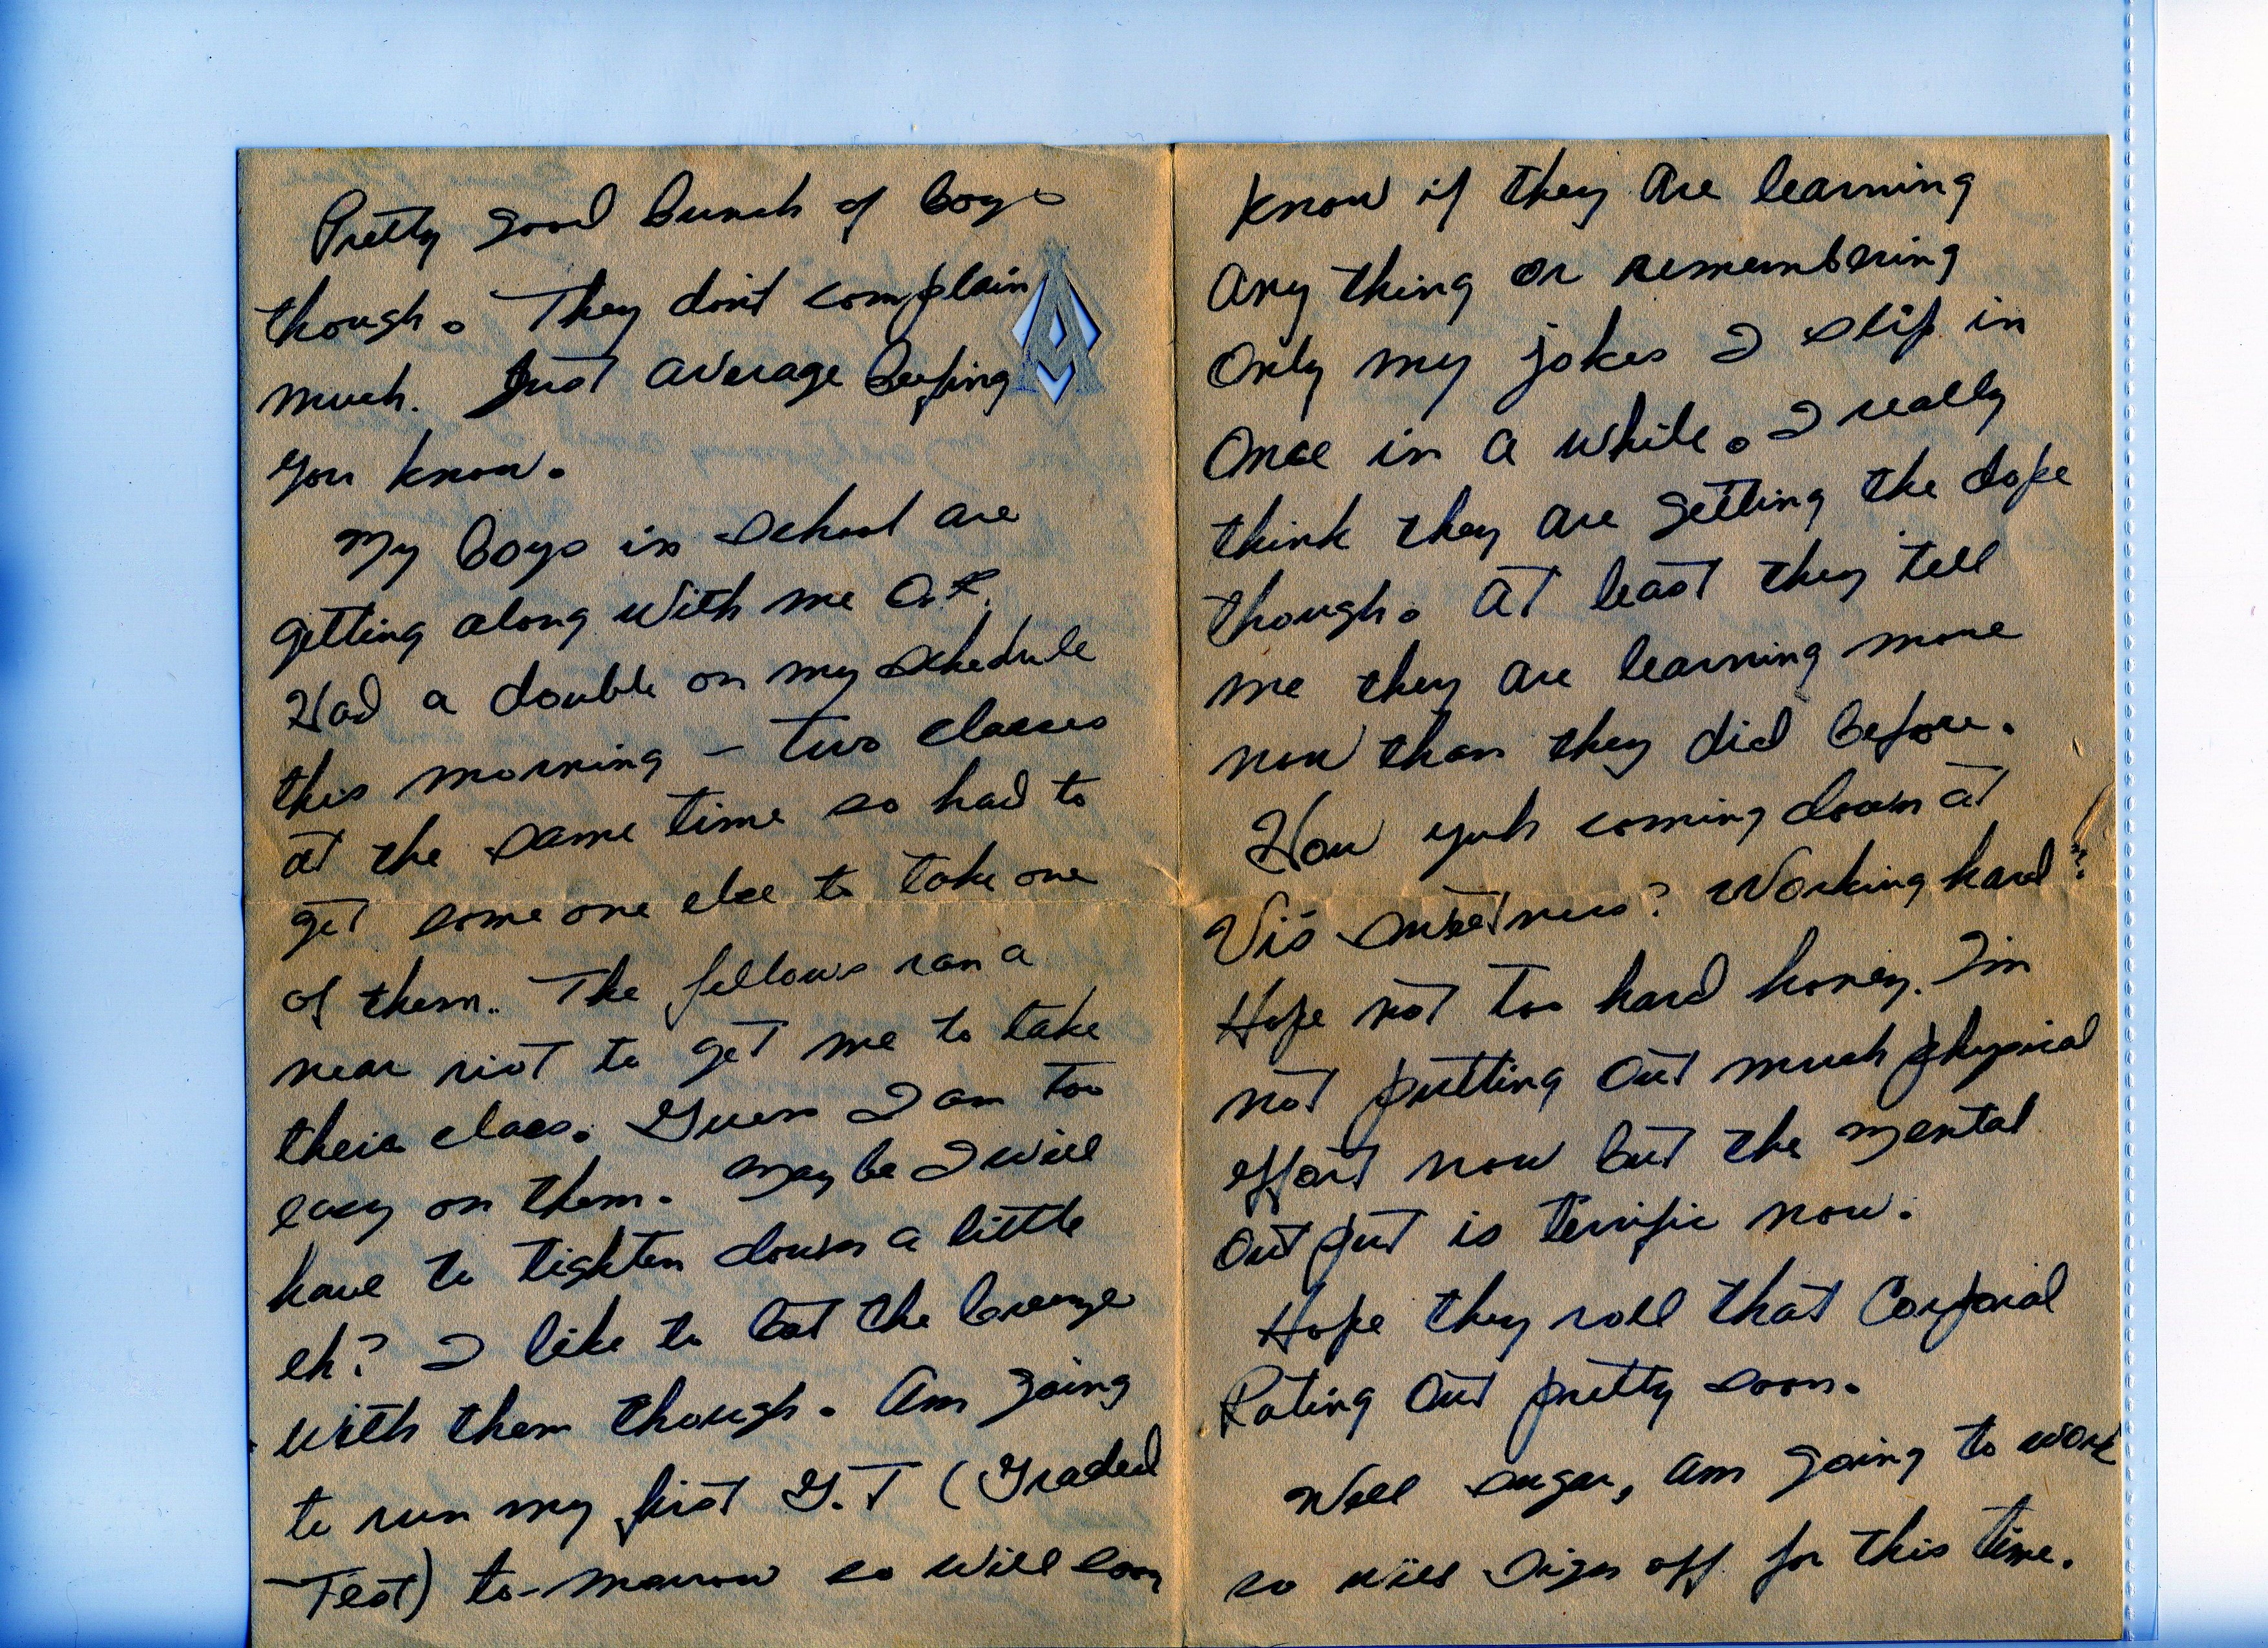 Pretty good bunch of boys
though. They don't complain
much. Just average beefing
you know.
My boys in school are
getting along with me O.K.
Had a double on my schedule
this morning – two classes
at the same time so had to
get some one else to take one
of them. The fellows ran a
near riot to get me to take
their class. Guess I am too
easy on them. May be I will
have to tighten down a little
eh? I like to bat the breeze
with them though. Am going
to run my first G.T (Graded
Test) to-morrow so will soon
know if they are learning
any thing or remembering
only my jokes I slip in
once in a while. I really
think they are getting the dope
though. At least they tell
me they are learning more
now than they did before.
How yuh coming down at
Vis sweetness? Working hard?
Hope not too hard honey. I'm
not putting out much physical
effort now but the mental
out put is terrific now.
Hope they roll that Corporal
Rating out pretty soon.
Well sugar, am going to work
so will sign off for this time.